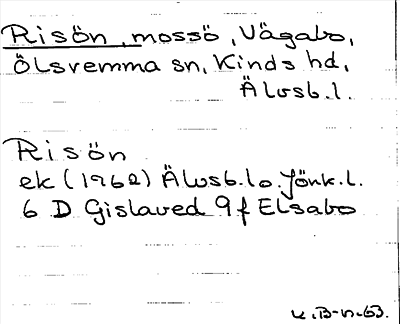 Risön, mossö, Vägabo,
Ölsremma sn, Kinds hd,
Älvsb. l.
Risön
ek (1962) Älvsb. l o. Jönk. l.
6 D Gislaved 9 f Elsabo
K. B-n. 63.